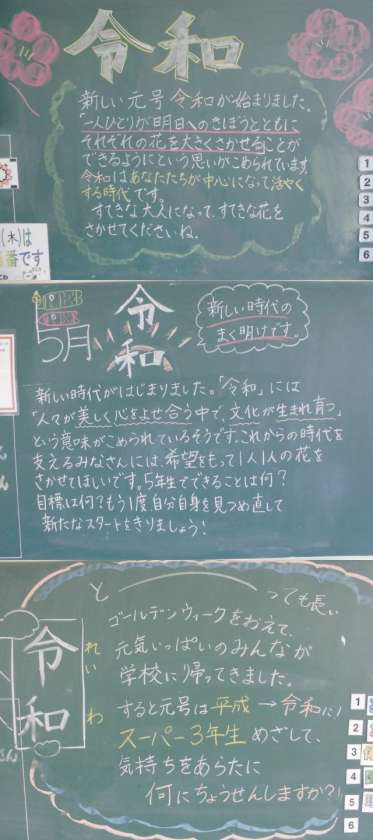 令和
新しい元号 令和が始まりました。
「一人ひとりが明日へのきぼうとともに
それぞれの花を大きくさかせることが
できるようにという思いがこめられています。
令和はあなたたちが中心になって活やく
する時代です。
すてきな大人になって、すてきな花を
さかせてくださいね。
(木)は
番です
1
2
3
4
5
6
5月
令和
新しい時代の
まく明けです。
新しい時代がはじまりました。「令和」には
「人々が美しく心をよせ合う中で、文化が生まれ育つ」
という意味がこめられているそうです。これからの時代を
支えるみなさんには、希望をもって1人1人の花を
さかせてほしいです。5年生でできることは何?
目標は何?もう1度、自分自身を見つめ直して
新たなスタートをきりましょう!
令和
れい
わ
とっても長い
ゴールデンウィークをおえて、
元気いっぱいのみんなが
学校に帰ってきました。
すると元号は平成→令和に!
スーパー3年生めざして、
気持ちをあらたに
何にちょうせんしますか?!
1
2
3
4
5
6